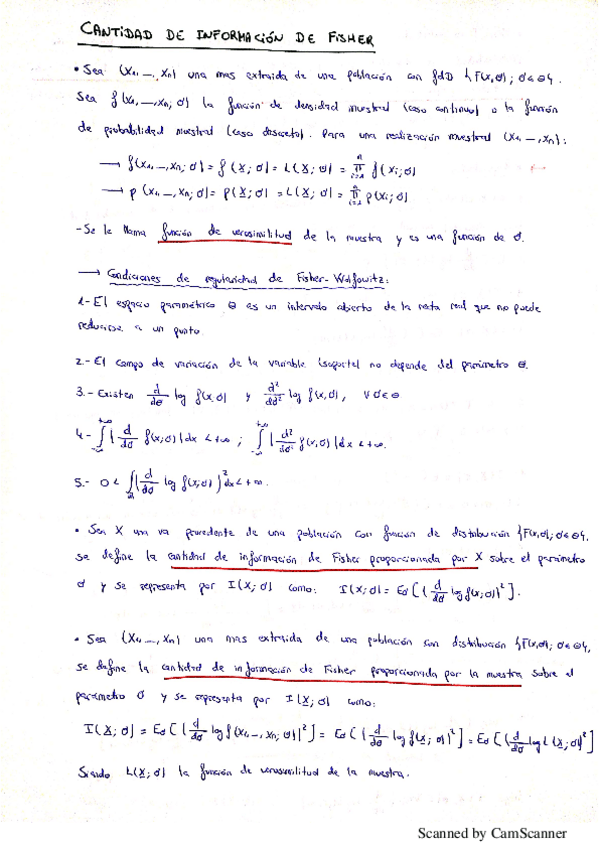 CANTIDAD DE INFORMACIÓN DE FISHER
• Sea (X1, ..., Xn) una mas extraida de una población con fdD {F(x,θ); θ∈Θ}.
Sea f(x1, ..., xn; θ) la función de densidad muestral (caso continuo) o la función
de probabilidad muestral (caso discreto). Para una realización muestral (x1, ..., xn):
→ f(x1, ..., xn; θ) = f(x; θ) = L(x; θ) = ∏ f(xi; θ)
→ p(x1, ..., xn; θ) = p(x; θ) = L(x; θ) = ∏ p(xi; θ)
- Se le llama función de verosimilitud de la muestra y es una función de θ.
→ Condiciones de regularidad de Fisher-Wolfowitz:
1- El espacio paramétrico Θ es un intervalo abierto de la recta real que no puede
reducirse a un punto.
2.- El campo de variación de la variable (soporte) no depende del parámetro θ.
3.- Existen d/dθ log f(x,θ) y d²/dθ² log f(x,θ), ∀θ∈Θ
4.- ∫|d/dθ f(x;θ)|dx < +∞ ; ∫|d²/dθ² f(x,θ)|dx < +∞.
5.- 0 < ∫(d/dθ log f(x;θ))² dx < +∞.
• Sea X una va procedente de una población con función de distribución {F(x,θ); θ∈Θ},
se define la cantidad de información de Fisher proporcionada por X sobre el parámetro
θ y se representa por I(X; θ) como: I(X;θ) = Eθ[(d/dθ log f(x;θ))²].
• Sea (X1, ..., Xn) una mas extraida de una población con distribución {F(x,θ); θ∈Θ},
se define la cantidad de información de Fisher proporcionada por la muestra sobre el
parámetro θ y se representa por I(X; θ) como:
I(X; θ) = Eθ[(d/dθ log f(x1, ..., xn; θ))²] = Eθ[(d/dθ log f(x; θ))²] = Eθ[(d/dθ log L(X; θ))²]
Siendo L(X; θ) la función de verosimilitud de la muestra.
Scanned by CamScanner